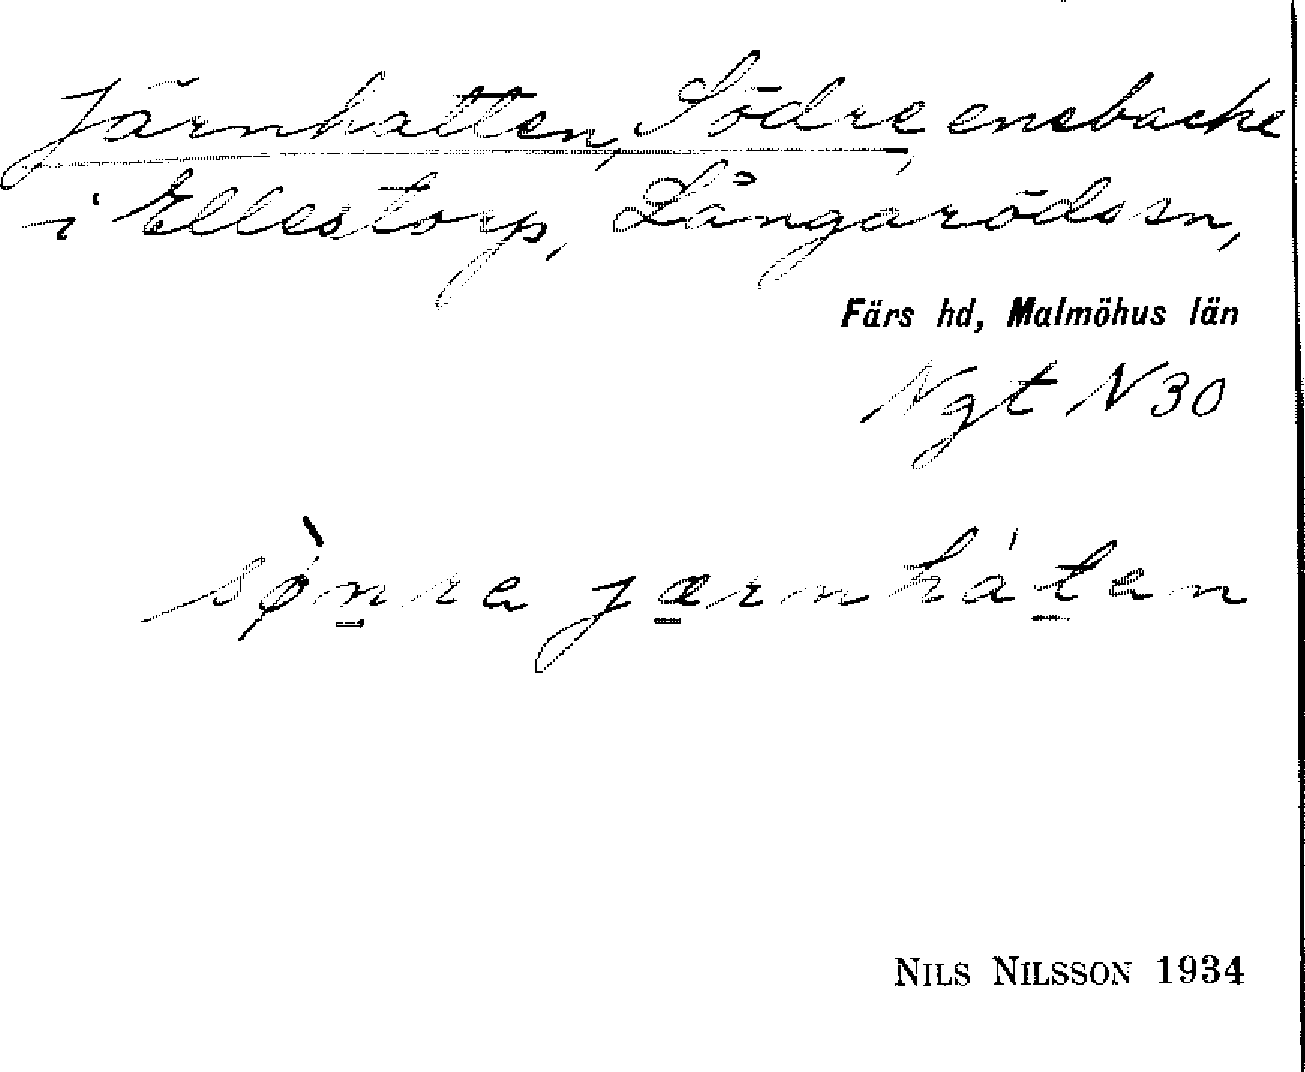 Järnhatten, Södre, enebacke
i Ellestorp, Långarödssn,
Färs hd, Malmöhus län
Ngt N30
sø̀n̲ra jæ̲rnhát̲an
NILS NILSSON 1934